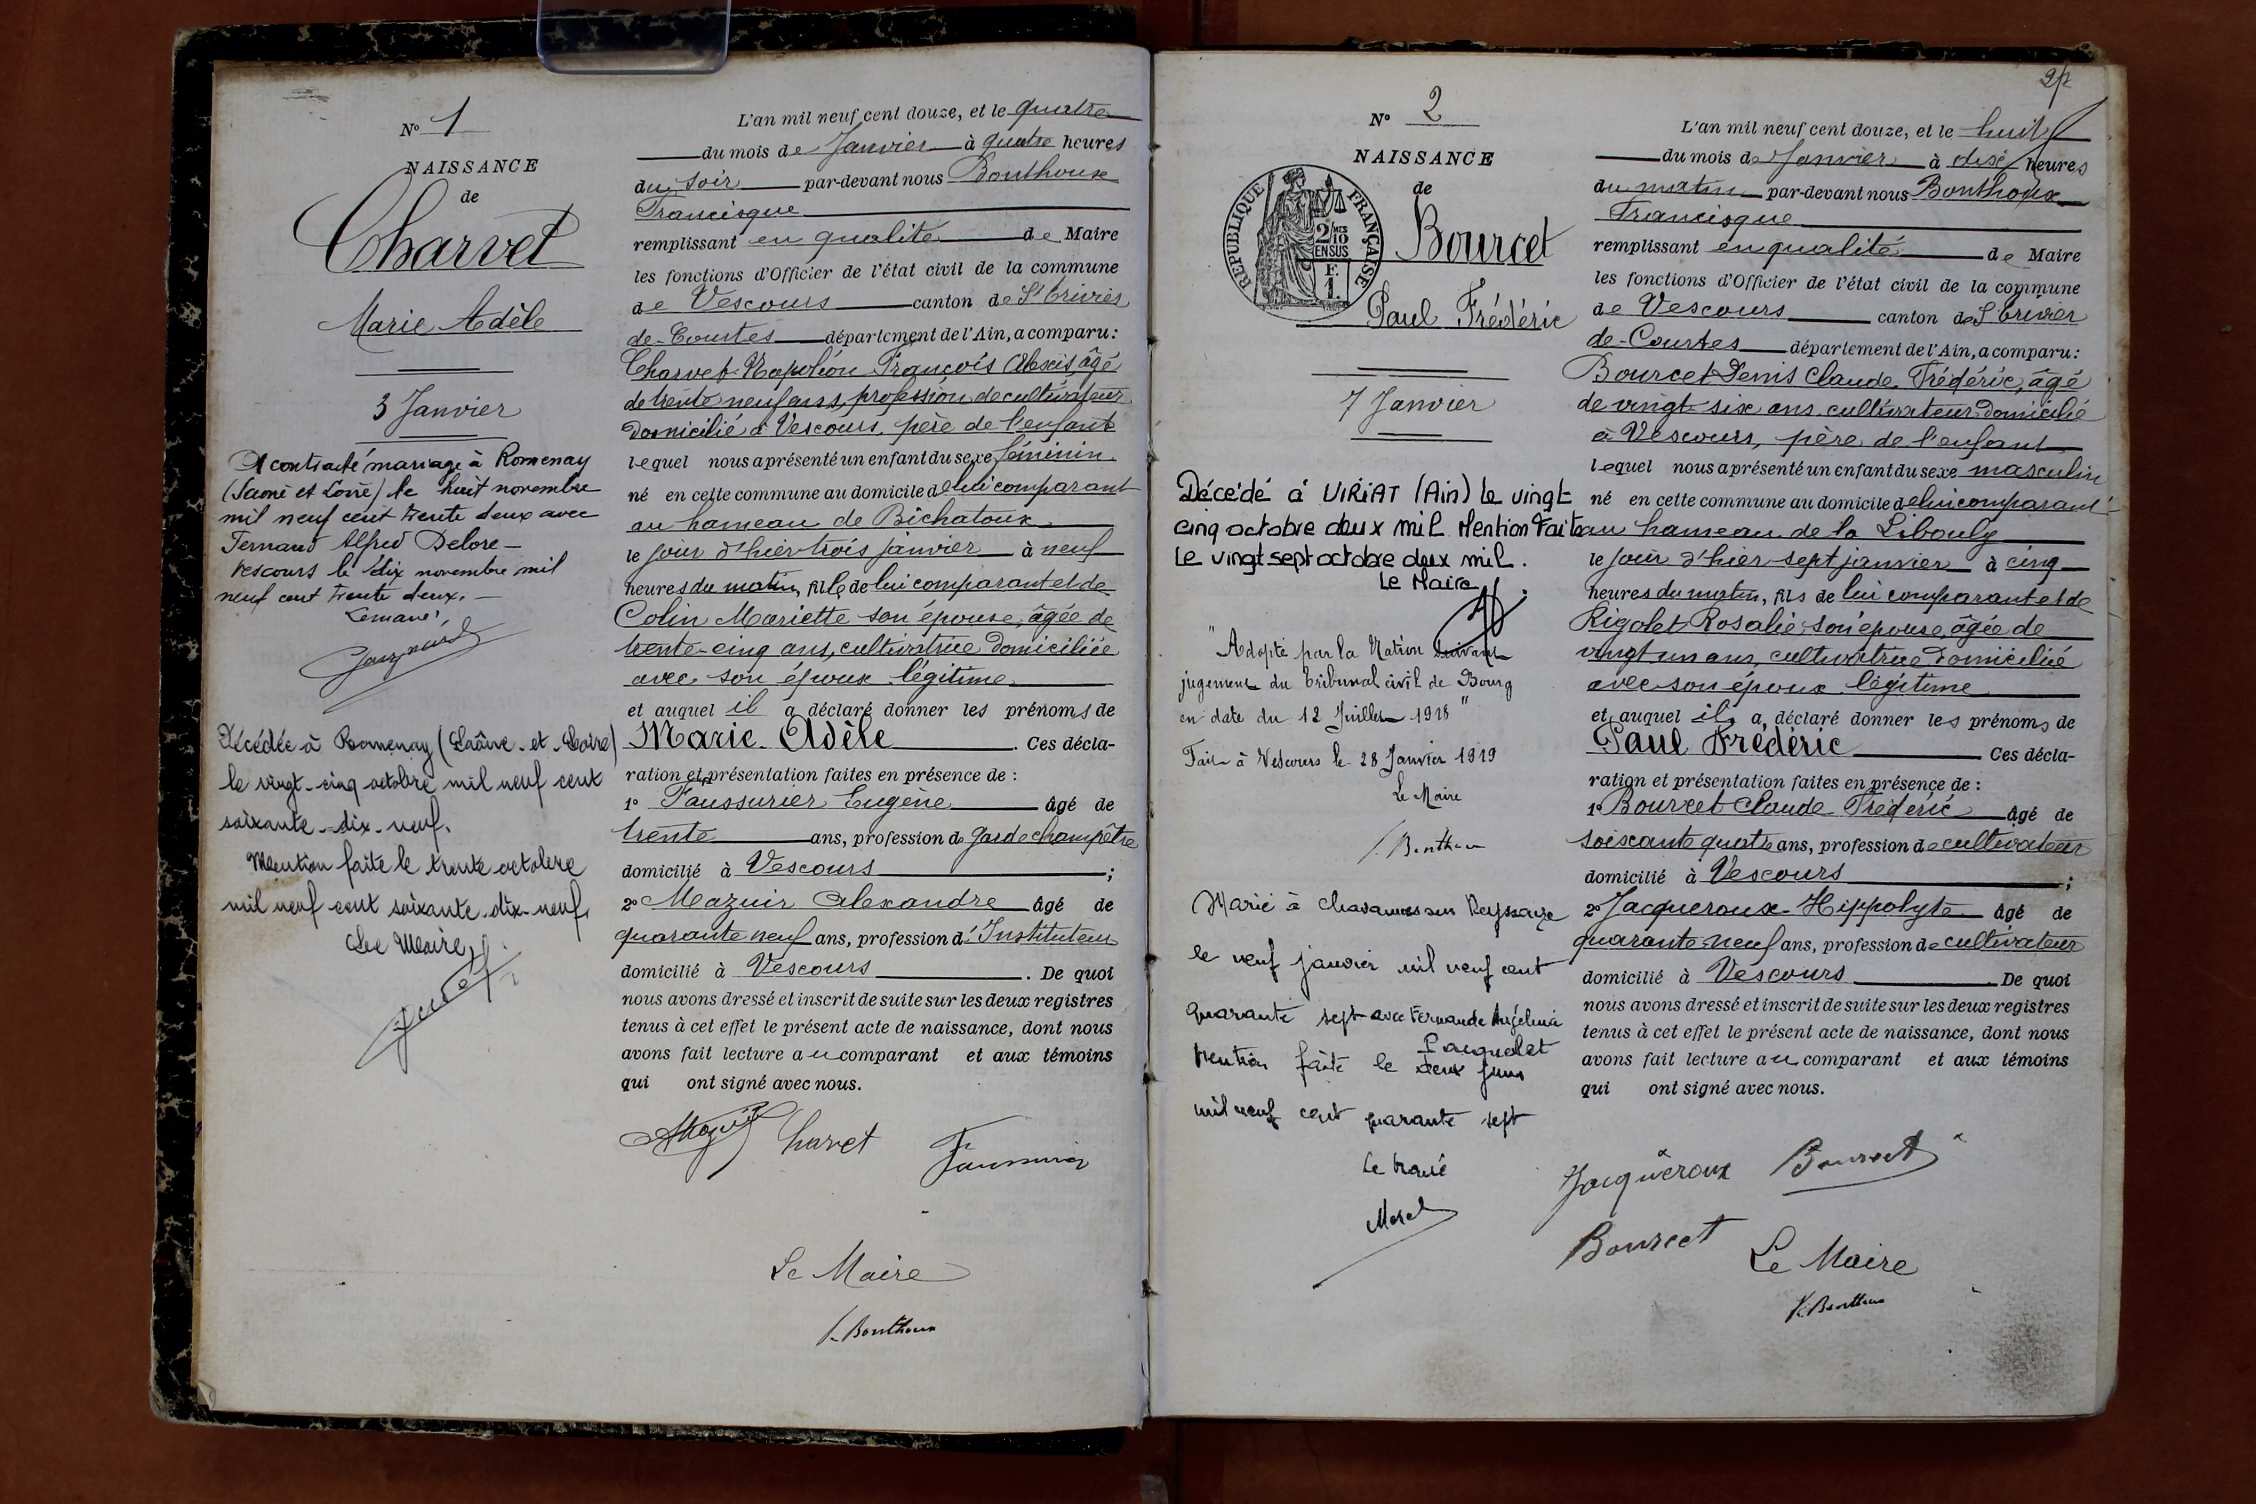 N° 1
NAISSANCE
de
Charvet
Marie Adèle
3 Janvier
A contracté mariage à Romenay
(Saône et Loire) le huit novembre
mil neuf cent trente deux avec
Fernand Alfred Delore —
Vescours le dix novembre mil
neuf cent trente deux. —
Le maire
Décédée à Romenay (Saône-et-Loire)
le vingt-cinq octobre mil neuf cent
soixante-dix-neuf.
Mention faite le trente octobre
mil neuf cent soixante-dix-neuf,
Le Maire,
L'an mil neuf cent douze, et le quatre
du mois de Janvier à quatre heures
du soir par-devant nous Bonthoux
Francisque
remplissant en qualité de Maire
les fonctions d'Officier de l'état civil de la commune
de Vescours canton de St Trivier
de-Courtes département de l'Ain, a comparu:
Charvet Napoléon François Alexis, âgé
de trente neuf ans, profession de cultivateur
domicilié à Vescours, père de l'enfant
lequel nous a présenté un enfant du sexe féminin
né en cette commune au domicile de lui comparant
au hameau de Bichatoux
le jour d'hier trois janvier à neuf
heures du matin, fille de lui comparant et de
Colin Mariette son épouse, âgée de
trente-cinq ans, cultivatrice domiciliée
avec son époux légitime
et auquel il a déclaré donner les prénoms de
Marie Adèle. Ces décla-
ration et présentation faites en présence de :
1° Faussurier Eugène âgé de
trente ans, profession de garde champêtre
domicilié à Vescours ;
2° Mazuir Alexandre âgé de
quarante neuf ans, profession d'Instituteur
domicilié à Vescours. De quoi
nous avons dressé et inscrit de suite sur les deux registres
tenus à cet effet le présent acte de naissance, dont nous
avons fait lecture au comparant et aux témoins
qui ont signé avec nous.
AMazuir Charvet Faussurier
Le Maire
F. Bonthoux
2
N° 2
NAISSANCE
de
REPUBLIQUE FRANÇAISE
2/10 MES
EN SUS
F.
1.
Bourcet
Paul Frédéric
7 Janvier
Décédé à VIRIAT (Ain) le vingt
cinq octobre deux mil. Mention faite
le vingt sept octobre deux mil.
Le Maire
"Adopté par la Nation suivant
jugement du Tribunal civil de Bourg
en date du 12 Juillet 1918"
Fait à Vescours le 28 Janvier 1919
Le Maire
F. Bonthoux
Marié à Chavannes sur Reyssouze
le neuf janvier mil neuf cent
quarante sept avec Fernande Angélina
Pacquelet
Mention faite le deux juin
mil neuf cent quarante sept
Le Maire
Morel
L'an mil neuf cent douze, et le huit
du mois de Janvier à dix heures
du matin par-devant nous Bonthoux
Francisque
remplissant en qualité de Maire
les fonctions d'Officier de l'état civil de la commune
de Vescours canton de St Trivier
de-Courtes département de l'Ain, a comparu:
Bourcet Denis Claude Frédéric, âgé
de vingt-six ans cultivateur domicilié
à Vescours, père de l'enfant
lequel nous a présenté un enfant du sexe masculin
né en cette commune au domicile de lui comparant
au hameau de la Libouly
le jour d'hier sept janvier à cinq
heures du matin, fils de lui comparant et de
Rigolet Rosalie, son épouse, âgée de
vingt un ans, cultivatrice domiciliée
avec son époux légitime
et auquel il a déclaré donner les prénoms de
Paul Frédéric Ces décla-
ration et présentation faites en présence de :
1° Bourcet Claude Frédéric âgé de
soixante quatre ans, profession de cultivateur
domicilié à Vescours ;
2° Jacqueroux Hippolyte âgé de
quarante-neuf ans, profession de cultivateur
domicilié à Vescours. De quoi
nous avons dressé et inscrit de suite sur les deux registres
tenus à cet effet le présent acte de naissance, dont nous
avons fait lecture au comparant et aux témoins
qui ont signé avec nous.
Jacqueroux Bourcet
Bourcet Le Maire
F. Bonthoux